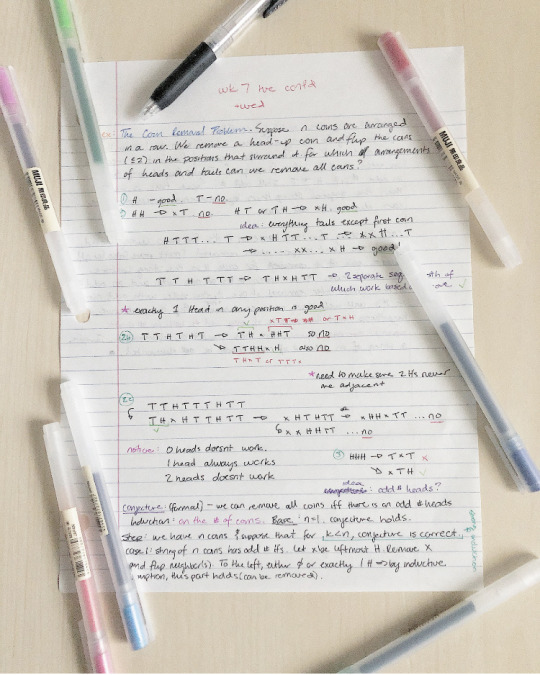 wk 7 lec cont'd
-wed
ex: The Coin Removal Problem. Suppose n coins are arranged
in a row. We remove a head-up coin and flip the coins
(≤2) in the positions that surround it. For which arrangements
of heads and tails can we remove all coins?
① H - good. T - no.
② HH → xT no. HT or TH → xH. good
idea: everything tails except first coin
HTTT...T → xHTT...T → xxH...T
→ ..... xx...xH → good!
TTHTTT → THxHTT → 2 separate of
which work based
* exactly 1 Head in any position is good
TTHTHT → THxHHT so no
→ TTHHxH also no
*need to make sure 2 H's never
are adjacent
TTHTTTHTT
THxHTTHTT → xHTHTT → xHHxTT ... no
xxHHTT ... no
notice: 0 heads doesnt work.
1 head always works
2 heads doesnt work
③ HHH → TxT x
→ xTH ✓
idea
: odd # heads?
Conjecture: (formal) - we can remove all coins iff there is an odd # heads
Induction: on the # of coins. Base: n=1, conjecture holds.
Step: we have n coins & suppose that for k<n, conjecture is correct.
case 1: string of n coins has odd # Hs. Let x be leftmost H. Remove x
and flip neighbor(s). To the left, either ∅ or exactly 1 H ⇒ by inductive
mption, this part holds (can be removed).
MUJI 無印良品
MUJI 無印良品